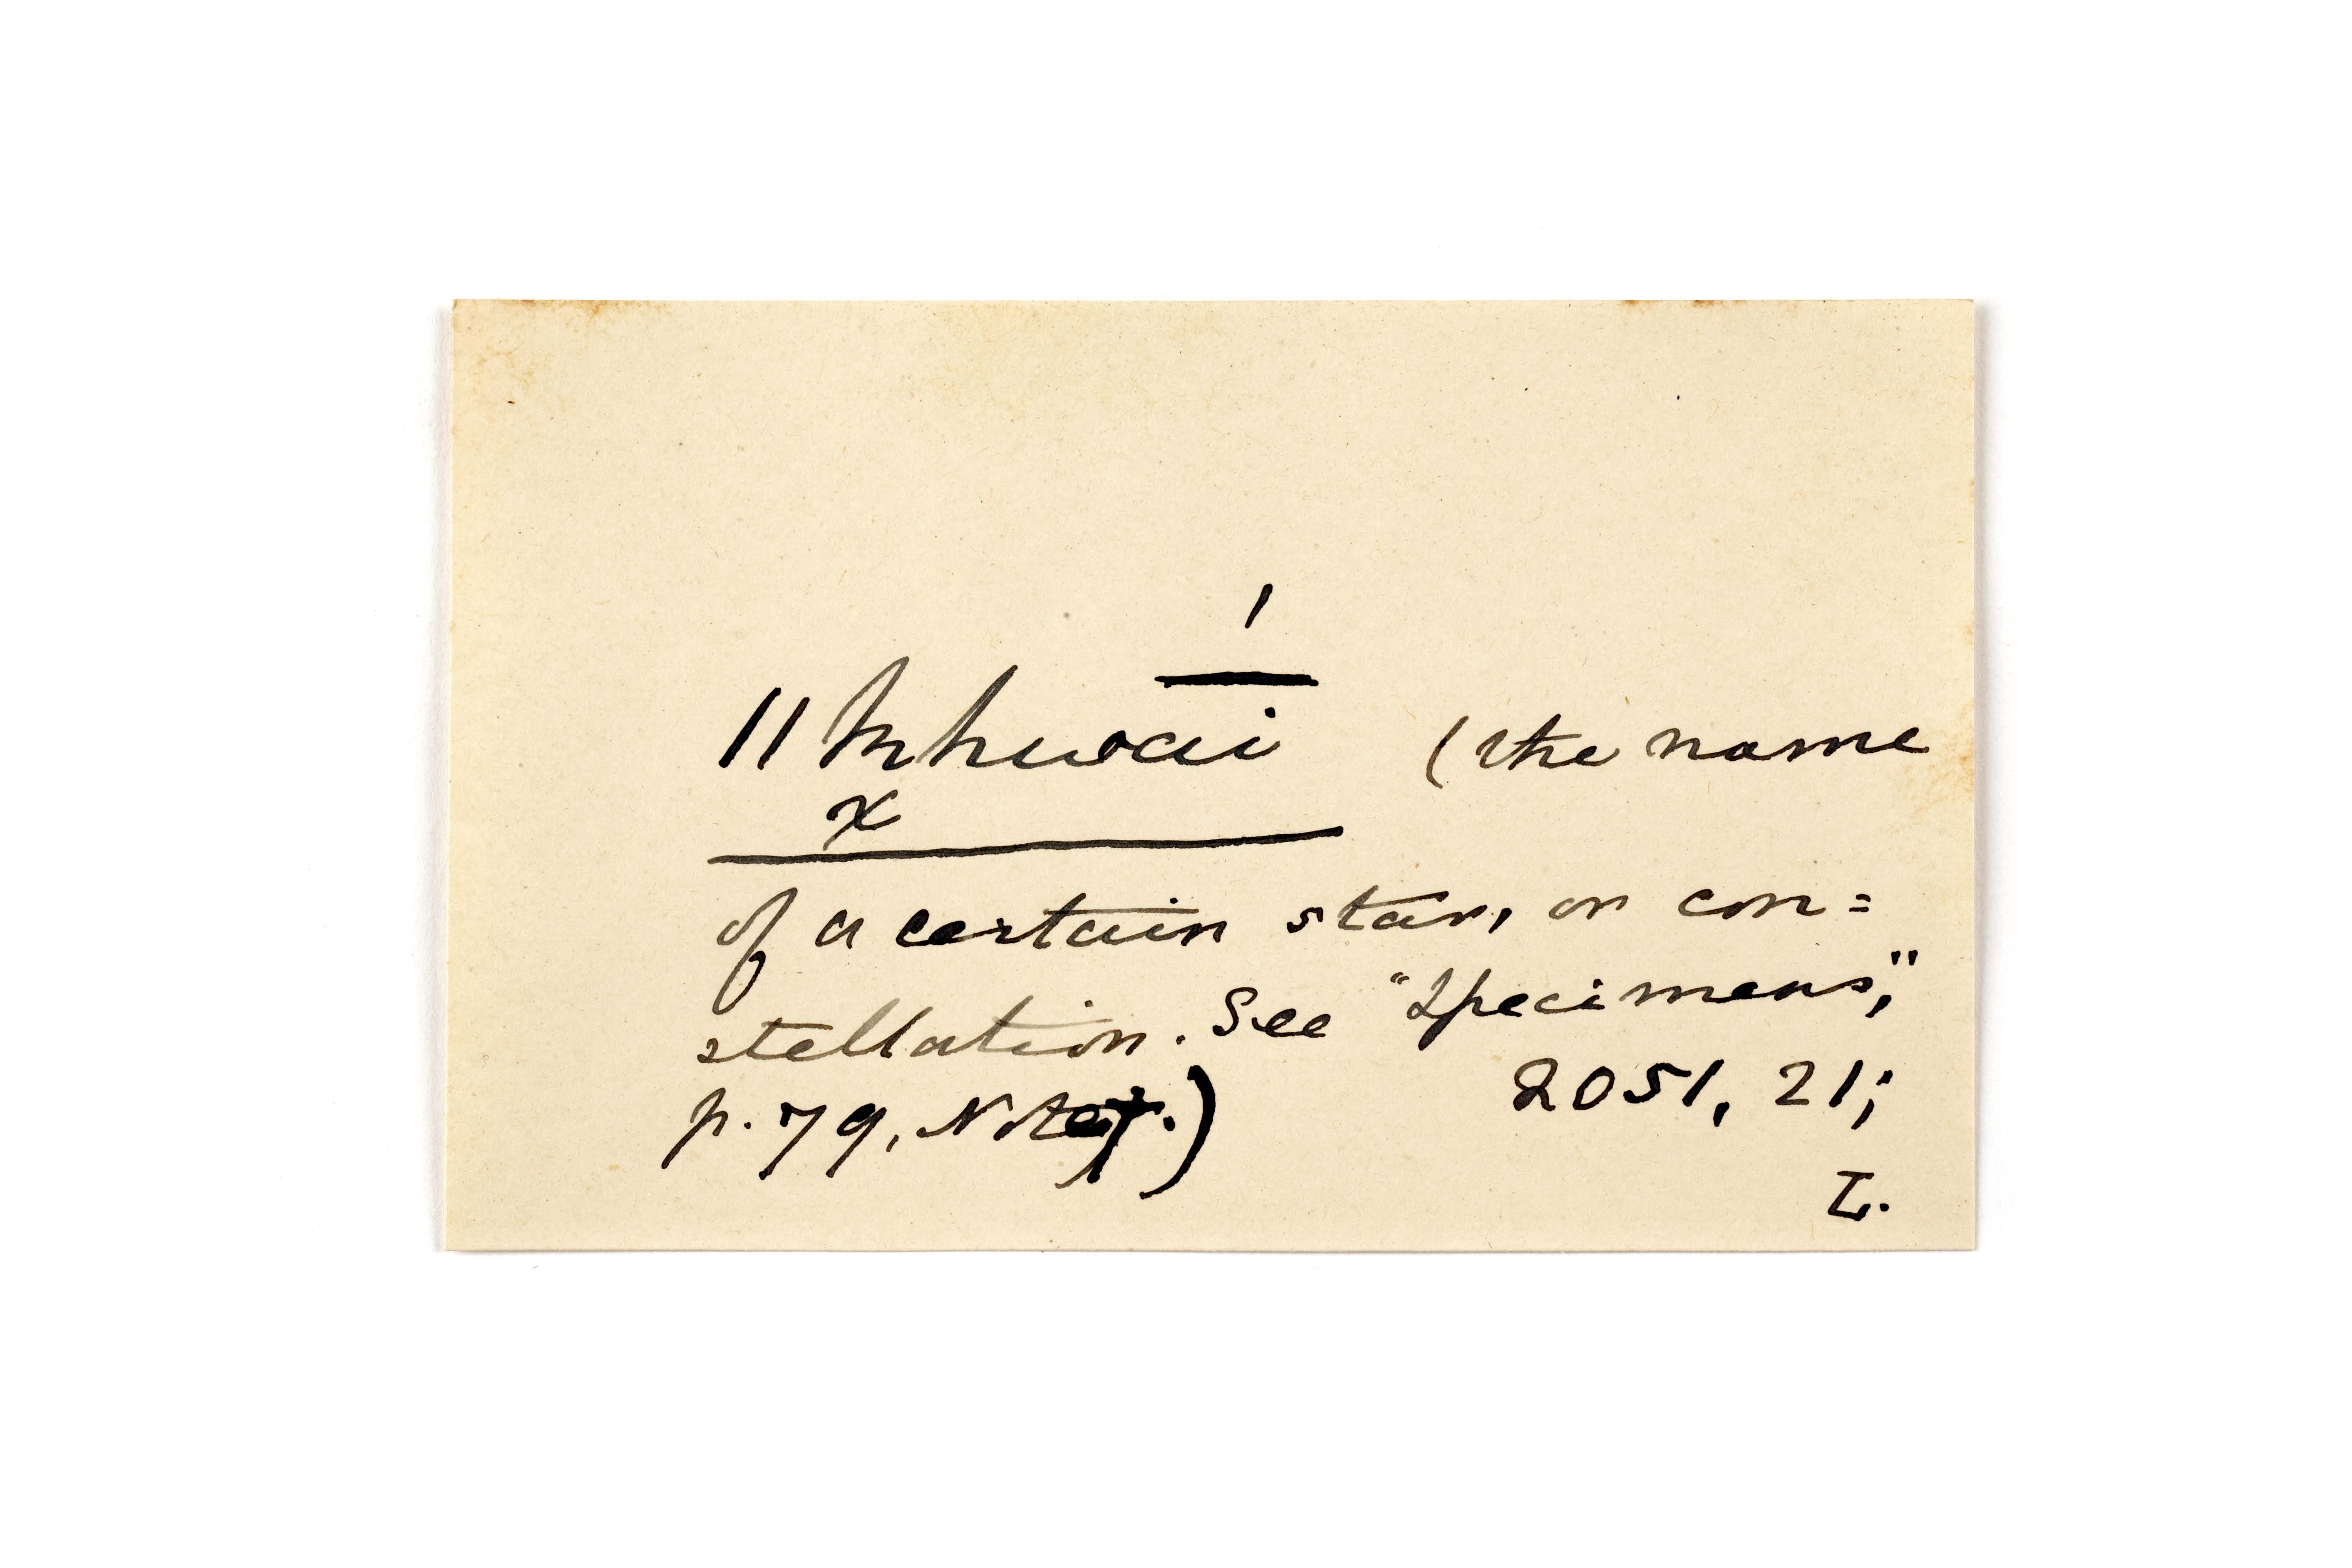 ǁkhwa͞í (the name
x
of a certain star, or con=
stellation. See "Specimens",
p. 79, Note †.) 2051, 21;
L.